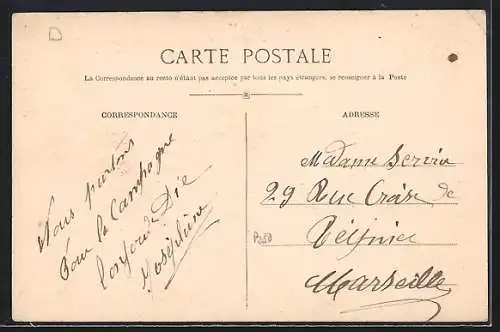 CARTE POSTALE
La Correspondance au recto n'étant pas acceptée par tous les pays étrangers, se renseigner à la Poste
CORRESPONDANCE
Nous partons
pour la Campagne
Die
Joséphine
ADRESSE
Madame Servin
29 Rue Croix de
Marseille